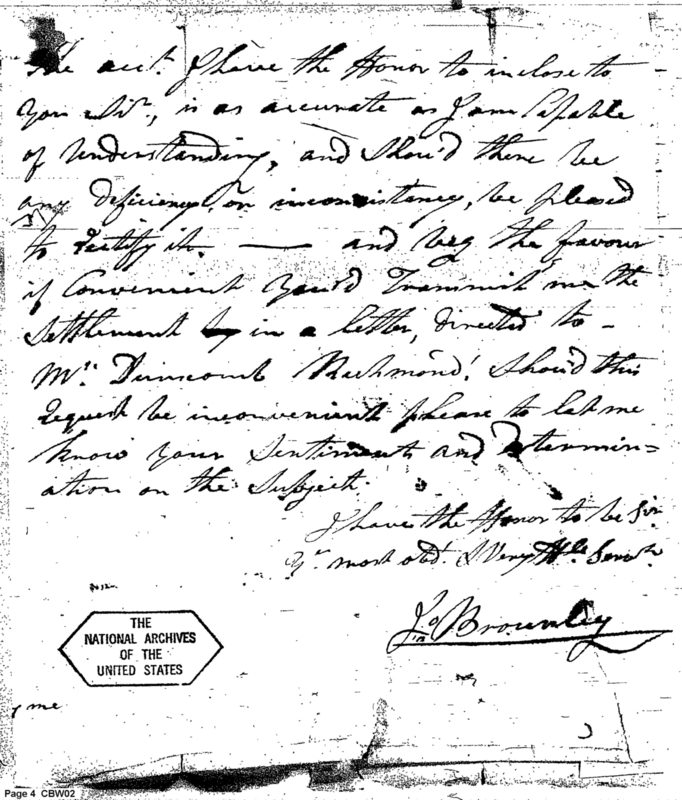 The acct. I have the Honor to inclose to
you Sir, is as accurate as I am Capable
of Understanding, and Shou'd there be
any deficiency, or inconsistency, be pleased
to rectify it. — and beg the favour
if Convenient you'd Transmit me the
Settlement in a letter, directed to -
Mr. Dunscomb Richmond! Shou'd this
request be inconvenient please to let me
know your Sentiments and determin=
ation on the Subject.
I have the Honor to be Sir
Yr. most obdt. & Very Hble Servt.
Jno Brownley
THE
NATIONAL ARCHIVES
OF THE
UNITED STATES
me
Page 4 CBW02